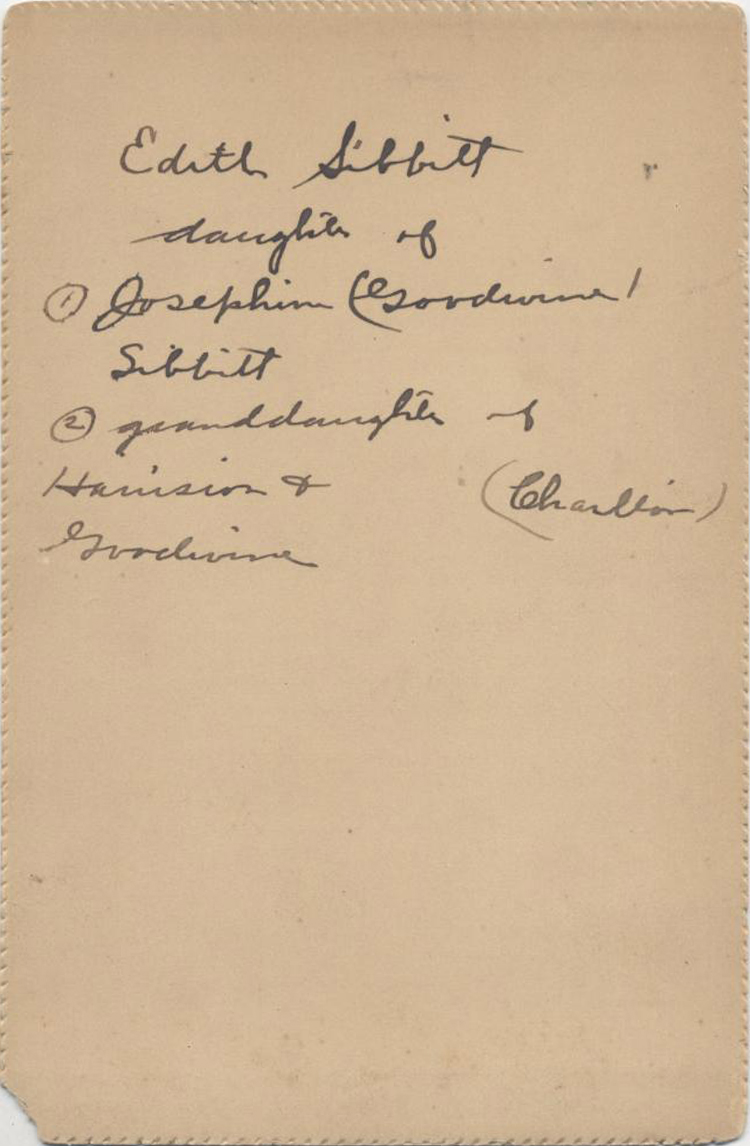 Edith Sibbitt
daughter of
① Josephine (Goodwine)
Sibbitt
② granddaughter of
Harrison & (Charlton)
Goodwine